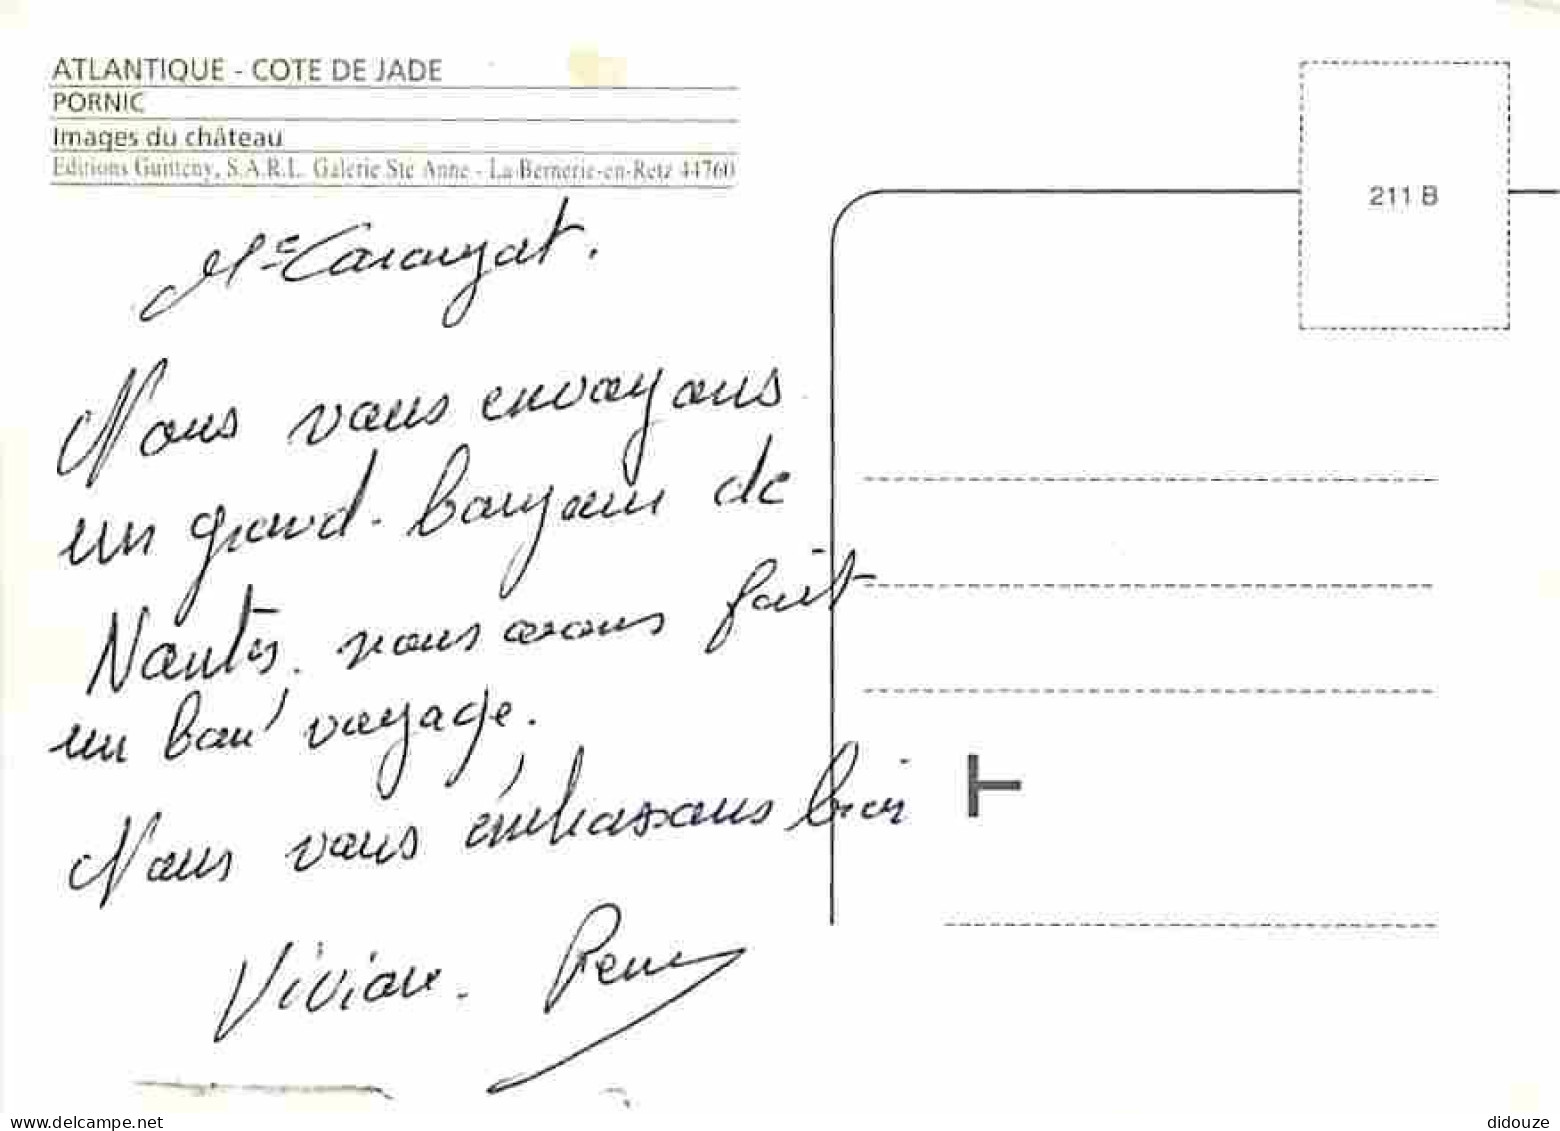 ATLANTIQUE - COTE DE JADE
PORNIC
Images du château
Editions Guitteny, S.A.R.L. Galerie Ste Anne - La Bernerie-en-Retz 44760
211 B
Nous vous envoyons
un grand bonjour de
Nantes. nous avons fait
un bon voyage.
Nous vous embrassons bien
Viviane.
delcampe.net
didouze